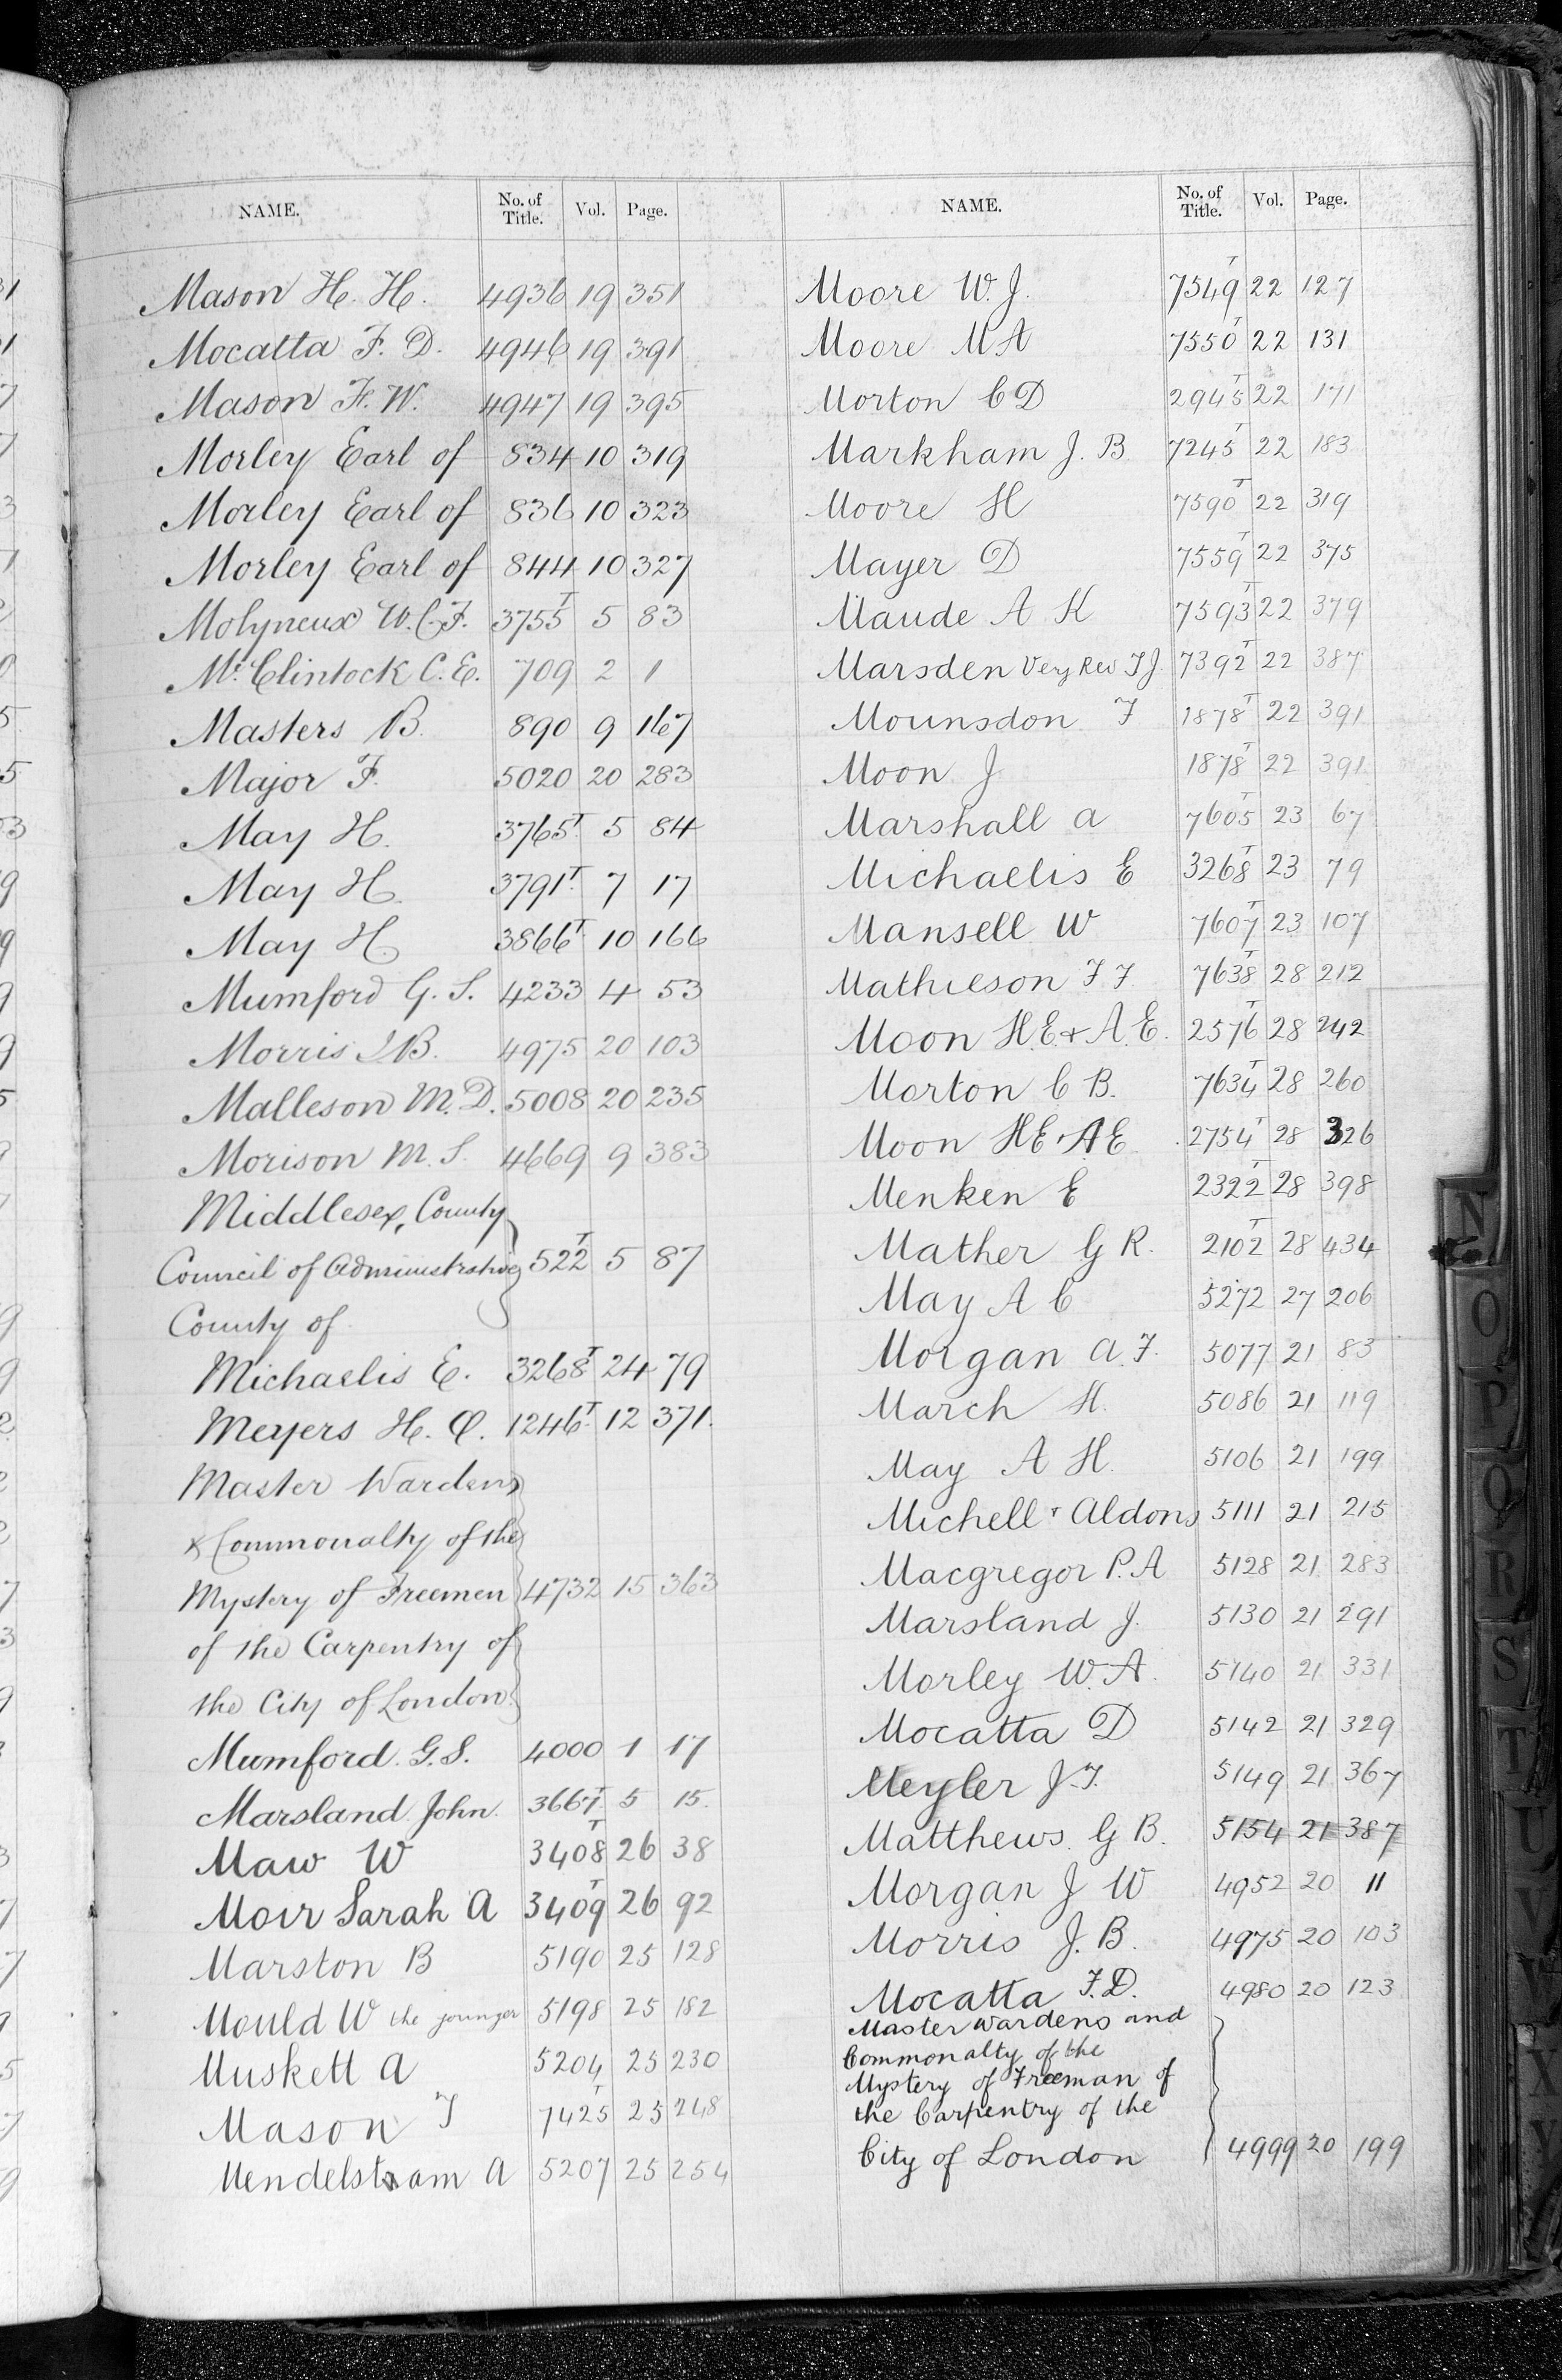 NAME. No. of Title. Vol. Page.
Mason H. H. 4936 19 351
Mocatta F. D. 4946 19 391
Mason F. W. 4947 19 395
Morley Earl of 834 10 319
Morley Earl of 836 10 323
Morley Earl of 844 10 327
Molyneux W. C. F. 3755T 5 83
McClintock C. E. 709 2 1
Masters B. 890 9 167
Major F. 5020 20 283
May H. 3765T 5 84
May H. 3791T 7 17
May H. 3866T 10 166
Mumford G. S. 4233 4 53
Morris J B. 4975 20 103
Malleson M. D. 5008 20 235
Morison M. S. 4669 9 383
Middlesex, County
Council of Administrative 522T 5 87
County of
Michaelis E. 3268T 24 79
Meyers H. C. 1246T 12 371
Master Wardens
& Commonalty of the
Mystery of Freemen 4732 15 363
of the Carpentry of
the City of London
Mumford G. S. 4000 1 17
Marsland John. 3667T 5 15
Maw W 3408T 26 38
Moir Sarah A 3409T 26 92
Marston B 5190 25 128
Mould W the younger 5198 25 182
Muskett A 5204 25 230
Mason T 7425T 25 248
Mendelstram A 5207 25 254
NAME. No. of Title. Vol. Page.
Moore W. J. 7549T 22 127
Moore M A 7550T 22 131
Morton C D 2945T 22 171
Markham J. B 7245T 22 183
Moore H 7590T 22 319
Mayer D 7559T 22 375
Maude A K 7593T 22 379
Marsden Very Rev T J. 7392T 22 387
Mounsdon F 1878T 22 391
Moon J 1878T 22 391
Marshall A 7605T 23 67
Michaelis E 3268T 23 79
Mansell W 7607T 23 107
Mathieson F F. 7638T 28 212
Moon H. E. & A. E. 2576T 28 242
Morton C B. 7634T 28 260
Moon H E & A E 2754T 28 326
Menken E 2322T 28 398
Mather G R. 2102T 28 434
May A C 5272 27 206
Morgan A. F. 5077 21 83
March H. 5086 21 119
May A H. 5106 21 199
Michell & Aldons 5111 21 215
Macgregor P. A 5128 21 283
Marsland J. 5130 21 291
Morley W. A. 5140 21 331
Mocatta D 5142 21 329
Meyler J. T. 5149 21 367
Matthews G B. 5154 21 387
Morgan J W 4952 20 11
Morris J. B. 4975 20 103
Mocatta F. D. 4980 20 123
Master Wardens and
Commonalty of the
Mystery of Freeman of
the Carpentry of the
City of London 4999 20 199
N
O
P
Q
R
S
T
U
V
W
X
Y